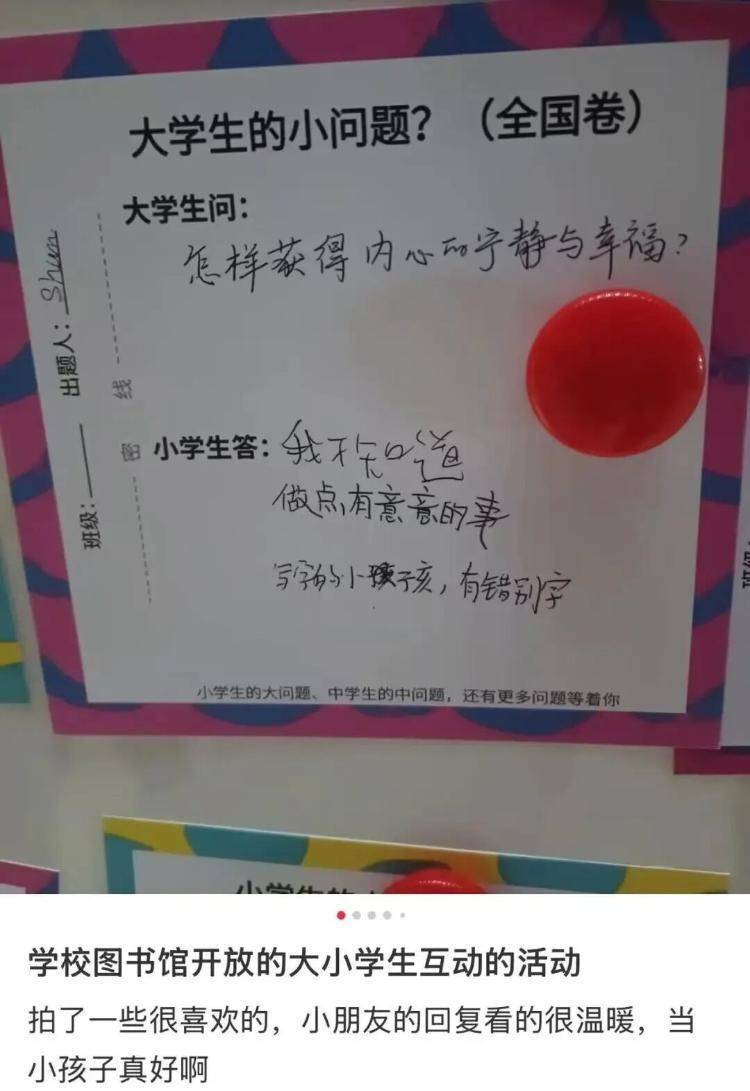 大学生的小问题？（全国卷）
大学生问：
怎样获得内心的宁静与幸福？
出题人：Shum
班级：
线
密
小学生答：我不知道
做点有意意的事
写字的小孩子孩，有错别字
小学生的大问题、中学生的中问题，还有更多问题等着你
学校图书馆开放的大小学生互动的活动
拍了一些很喜欢的，小朋友的回复看的很温暖，当
小孩子真好啊